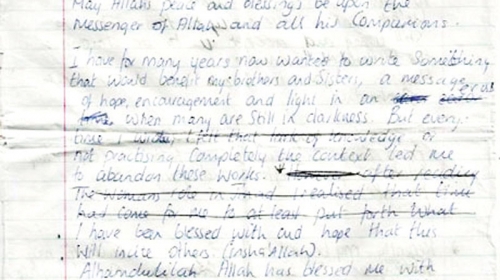 May Allahs peace and blessings be upon the
Messenger of Allah and all his Companions.
I have for many years now wanted to write something
that would benefit my brothers and Sisters, a message
of hope, encouragement and light in an
when many are still in darkness. But every
time I write, I felt that lack of knowledge or
not practising completely the context led me
to abandon these works. after reading
The Womans role in Jihad I realised that time
had come for me to at least put forth what
I have been blessed with and hope that this
will incite others (insha'Allah).
Alhamdulilah Allah has blessed me with